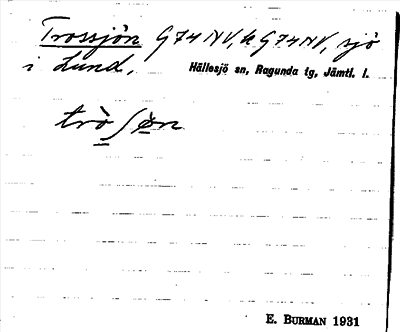 Trossjön 974 NV, k 974 NV, sjö
i Lund. Hällesjö sn, Ragunda tg, Jämtl. l.
trò ʃòn
E. BURMAN 1931